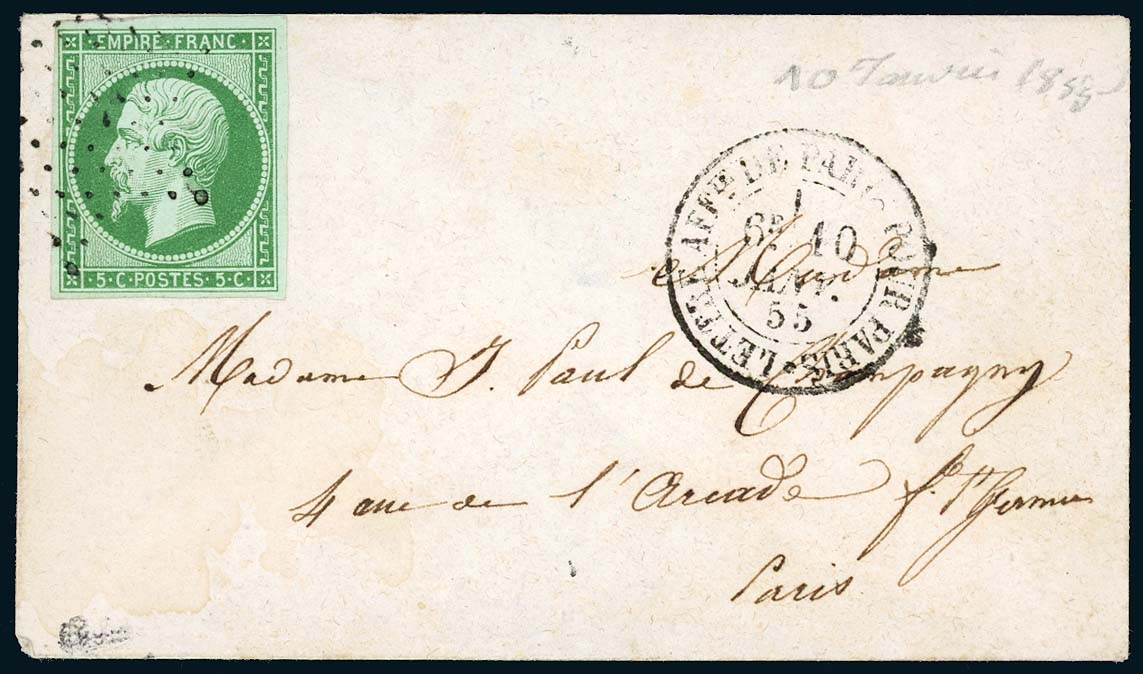 EMPIRE · FRANC ·
· 5 · C · POSTES · 5 · C ·
10 Janvier 1855
LETTRE AFFIE. DE PARIS POUR PARIS
1
6E 10
JANV.
55
a Madame
Madame J. Paul de Champagny
4 rue de l'Arcade f. St Germ
Paris